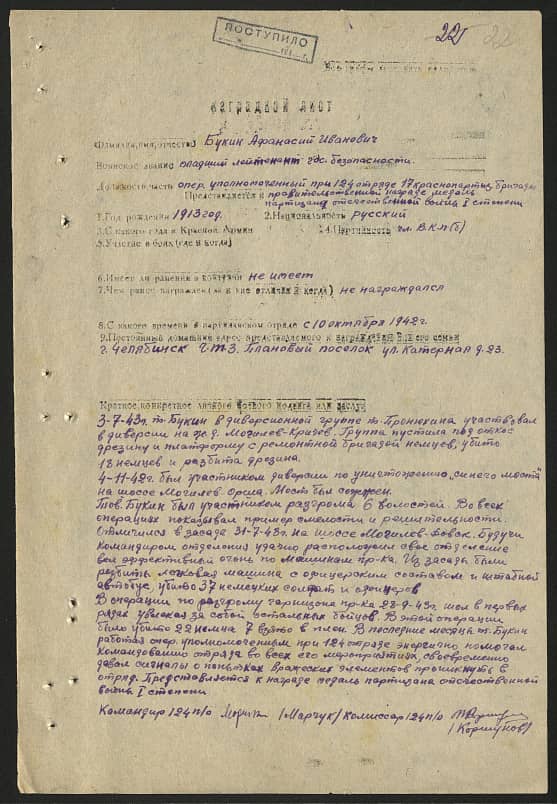 ПОСТУПИЛО
22
22
НАГРАДНОЙ ЛИСТ
Фамилия, имя, отчество Букин Афанасий Иванович
Воинское звание младший лейтенант гос. безопасности.
Должность часть опер. уполномоченный при 124 отряде 17 краснопартиз. бригады
Представляется к правительственной награде медаль
партизана отечественной войны I степени
1.Год рождения 1913 год. 2.Национальность русский
3.С какого года в Красной Армии 4.Партийность чл. ВКП(б)
5.Участие в боях(где и когда)
6.Имеет ли ранения и контузии не имеет
7.Чем ранее награжден(за какие отличия и когда) не награждался
8.С какого времени в партизанском отряде с 10 октября 1942 г.
9.Постоянный домашний адрес представляемого к награждению и его семьи
г. Челябинск ЧТЗ. Плановый поселок ул. Катерная д. 23.
Краткое конкретное личного боевого подвига или заслуг
3-7-43 г. т. Букин в диверсионной группе т. участвовал
в диверсии на ж.д. Могилев-Кричев. Группа пустила под откос
дрезину и платформу с ремонтной бригадой немцев, убито
18 немцев и разбита дрезина.
4-11-42 г. был участником диверсии по уничтожению „синего моста"
на шоссе Могилев-Орша. Мост был сожжен.
Тов. Букин был участником разгрома 6 волостей. Во всех
операциях показывал пример смелости и решительности.
Отличился в засаде 31-7-43 г. на шоссе Могилев-Довск. Будучи
командиром отделения удачно расположил свое отделение
вел эффективный огонь по машинам пр-ка. Из засады были
разбиты легковая машина с офицерским составом и штабной
автобус, убито 37 немецких солдат и офицеров
В операции по разгрому гарнизона пр-ка 22-9-43 г. шел в первых
рядах увлекая за собой остальных бойцов. В этой операции
было убито 22 немца 7 взято в плен. В последние месяцы т. Букин
работая опер. уполномоченным при 124 отряде энергично помогал
командованию отряда во всех его мероприятиях своевременно
давал сигналы о попытках вражеских элементов проникнуть в
отряд. Представляется к награде медаль партизана отечественной
войны I степени
Командир 124 п/о /Марчук/ комиссар 124 п/о
/Коршунов/